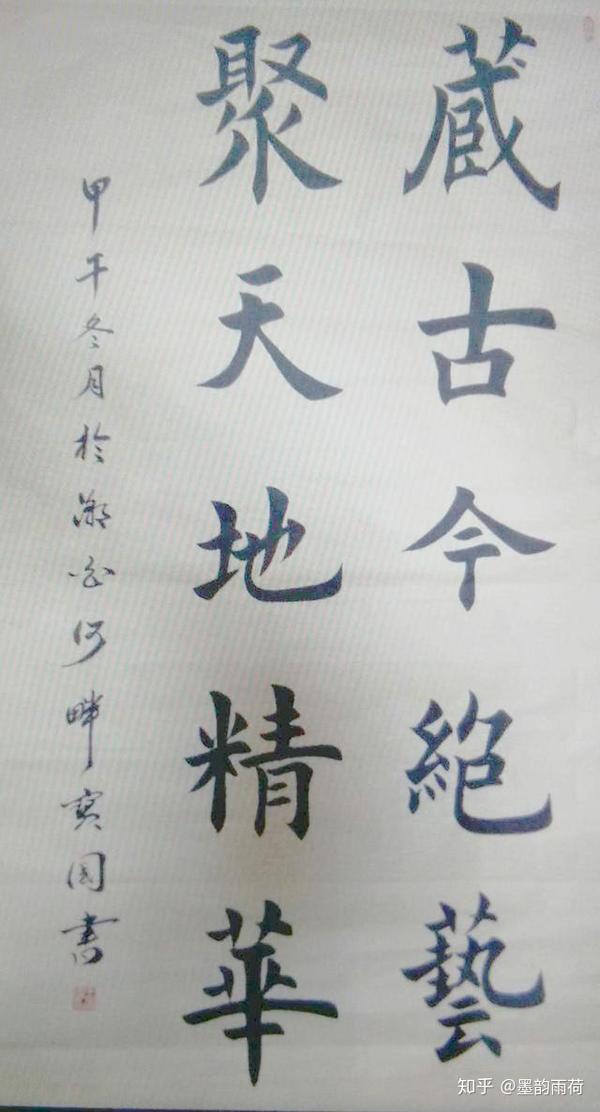 藏古今絕藝
聚天地精華
甲午冬月於潮白河畔寶国書
知乎 @墨韵雨荷